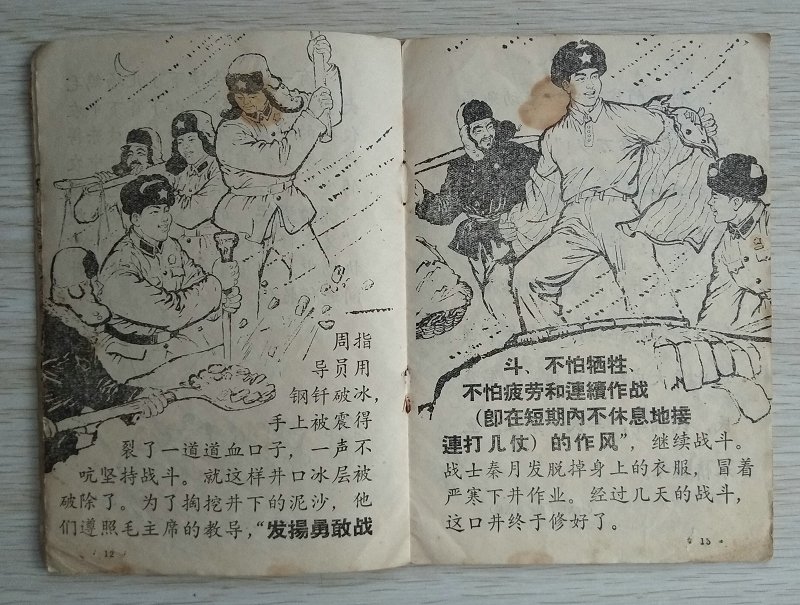 周指
导员用
钢钎破冰，
手上被震得
裂了一道道血口子，一声不
吭坚持战斗。就这样井口冰层被
破除了。为了掏挖井下的泥沙，他
们遵照毛主席的教导，“发揚勇敢战
12
斗、不怕牺牲、
不怕疲劳和連續作战
（卽在短期內不休息地接
連打几仗）的作风”，继续战斗。
战士秦月发脱掉身上的衣服，冒着
严寒下井作业。经过几天的战斗，
这口井终于修好了。
13